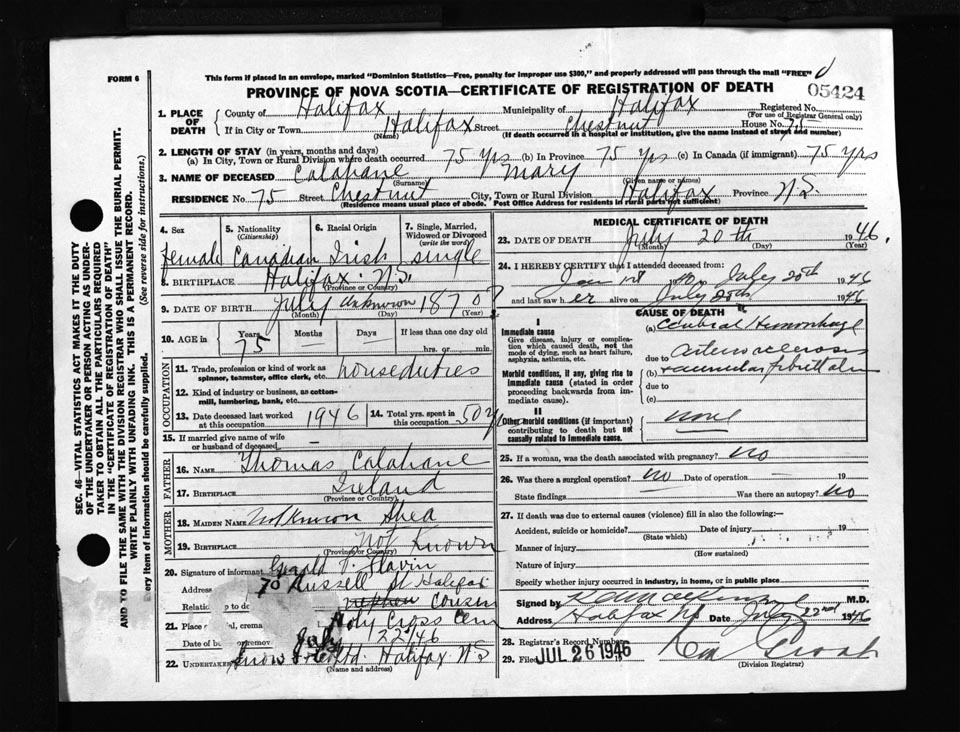 FORM 6
This form if placed in an envelope, marked "Dominion Statistics—Free, penalty for improper use $300," and properly addressed will pass through the mail "FREE"
PROVINCE OF NOVA SCOTIA—CERTIFICATE OF REGISTRATION OF DEATH
05424
1. PLACE OF DEATH
County of Halifax Municipality of Halifax Registered No.
(For use of Registrar General only)
If in City or Town Halifax Street Chestnut House No. 75
(Name) (If death occurred in a hospital or institution, give the name instead of street and number)
2. LENGTH OF STAY (in years, months and days)
(a) In City, Town or Rural Division where death occurred 75 yrs (b) In Province 75 yrs (c) In Canada (if immigrant) 75 yrs
3. NAME OF DECEASED Calahane Mary
(Surname) (Given name or names)
RESIDENCE No. 75 Street Chestnut City, Town or Rural Division Halifax Province N.S.
(Residence means usual place of abode. Post Office Address for residents in rural parts not sufficient)
4. Sex
female
5. Nationality (Citizenship)
Canadian
6. Racial Origin
Irish
7. Single, Married, Widowed or Divorced (write the word)
single
8. BIRTHPLACE Halifax N.S.
(Province or Country)
9. DATE OF BIRTH July unknown 1870?
(Month) (Day) (Year)
10. AGE in
Years Months Days If less than one day old
75 — — hrs. or min.
OCCUPATION
11. Trade, profession or kind of work as spinner, teamster, office clerk, etc. houseduties
12. Kind of industry or business, as cotton-mill, lumbering, bank, etc.
13. Date deceased last worked at this occupation 1946
14. Total yrs. spent in this occupation 50 y
15. If married give name of wife or husband of deceased —
FATHER
16. NAME Thomas Calahane
17. BIRTHPLACE Ireland
(Province or Country)
MOTHER
18. MAIDEN NAME Not known Shea
19. BIRTHPLACE Not Known
(Province or Country)
20. Signature of informant Gerald Slavin
Address 70 Russell St Halifax
Relation to de nephew cousin
21. Place crema Holy Cross Cem
Date of bu remov July 22/46
22. Undertake Snow Ltd. Halifax N.S.
(Name and address)
MEDICAL CERTIFICATE OF DEATH
23. DATE OF DEATH July 20th 1946.
(Month) (Day) (Year)
24. I HEREBY CERTIFY that I attended deceased from:
Jan 1st to July 20th 1946
and last saw her alive on July 20th 1946
CAUSE OF DEATH
I
Immediate cause
Give disease, injury or complication which caused death, not the mode of dying, such as heart failure, asphyxia, asthenia, etc.
(a) Cerebral Hemorrhage
due to arteriosclerosis
Morbid conditions, if any, giving rise to immediate cause (stated in order proceeding backwards from immediate cause).
(b) + auricular fibrillation
due to
(c)
II
Other morbid conditions (if important) contributing to death but not causally related to immediate cause.
none
25. If a woman, was the death associated with pregnancy? no
26. Was there a surgical operation? no Date of operation — 19
State findings Was there an autopsy? no
27. If death was due to external causes (violence) fill in also the following:—
Accident, suicide or homicide? Date of injury 19
(State which)
Manner of injury
(How sustained)
Nature of injury
Specify whether injury occurred in industry, in home, or in public place
Signed by M.D.
Address Halifax NS Date July 22nd 1946
28. Registrar's Record Number
29. Filed JUL 26 1946
(Division Registrar)
SEC. 46—VITAL STATISTICS ACT MAKES IT THE DUTY
OF THE UNDERTAKER OR PERSON ACTING AS UNDER-
TAKER TO OBTAIN ALL THE PARTICULARS REQUIRED
IN THE "CERTIFICATE OF REGISTRATION OF DEATH"
AND TO FILE THE SAME WITH THE DIVISION REGISTRAR WHO SHALL ISSUE THE BURIAL PERMIT.
WRITE PLAINLY WITH UNFADING INK. THIS IS A PERMANENT RECORD.
Every item of information should be carefully supplied. (See reverse side for instructions.)